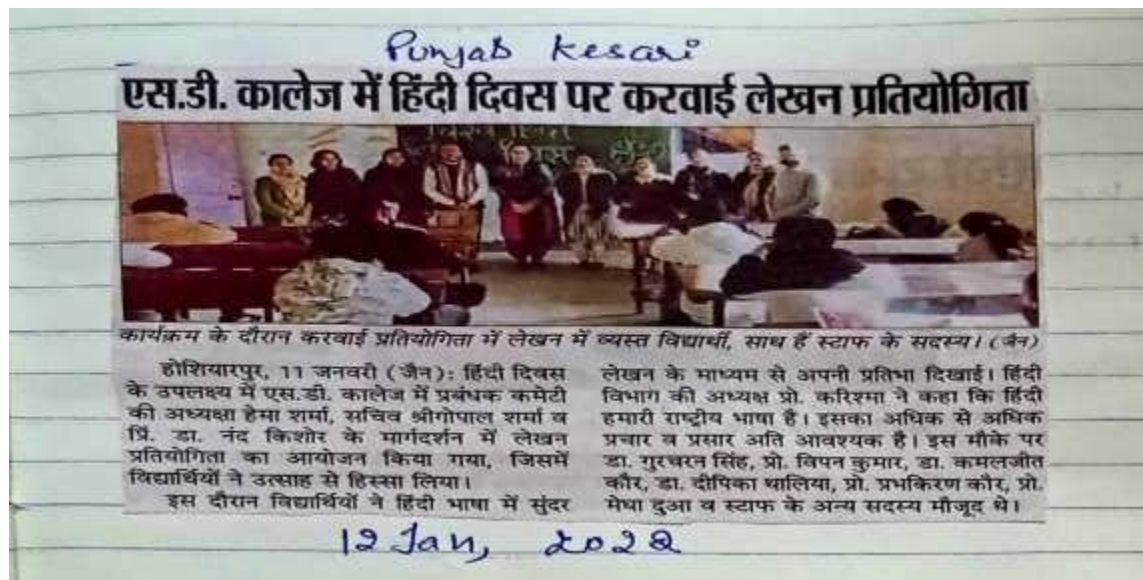 Punjab Kesari
एस.डी. कालेज में हिंदी दिवस पर करवाई लेखन प्रतियोगिता
कार्यक्रम के दौरान करवाई प्रतियोगिता में लेखन में व्यस्त विद्यार्थी, साथ हैं स्टाफ के सदस्य। (जैन)
होशियारपुर, 11 जनवरी (जैन): हिंदी दिवस
के उपलक्ष्य में एस.डी. कालेज में प्रबंधक कमेटी
की अध्यक्षा हेमा शर्मा, सचिव श्रीगोपाल शर्मा व
प्रिं. डा. नंद किशोर के मार्गदर्शन में लेखन
प्रतियोगिता का आयोजन किया गया, जिसमें
विद्यार्थियों ने उत्साह से हिस्सा लिया।
इस दौरान विद्यार्थियों ने हिंदी भाषा में सुंदर
लेखन के माध्यम से अपनी प्रतिभा दिखाई। हिंदी
विभाग की अध्यक्ष प्रो. करिश्मा ने कहा कि हिंदी
हमारी राष्ट्रीय भाषा है। इसका अधिक से अधिक
प्रचार व प्रसार अति आवश्यक है। इस मौके पर
डा. गुरचरन सिंह, प्रो. विपन कुमार, डा. कमलजीत
कौर, डा. दीपिका धालिया, प्रो. प्रभकिरण कौर, प्रो.
मेघा दुआ व स्टाफ के अन्य सदस्य मौजूद थे।
12 Jan, 2022